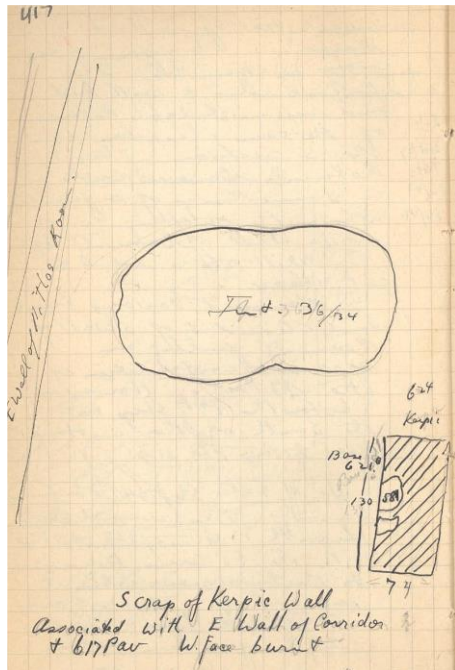 417
E Wall of N. Mos. Room.
624
Kerpic
Base
621.
130
589
74
Scrap of Kerpic Wall
Associated with E Wall of Corridor
+ 617 Pav W. Face burnt